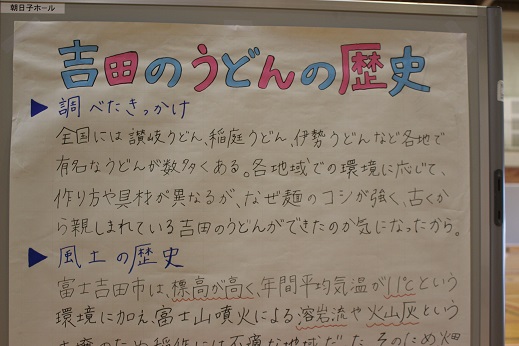 朝日子ホール
吉田のうどんの歴史
▶ 調べたきっかけ
全国には讃岐うどん、稲庭うどん、伊勢うどんなど各地で
有名なうどんが数多くある。各地域での環境に応じて、
作り方や具材が異なるが、なぜ麺のコシが強く、古くか
ら親しまれている吉田のうどんができたのか気になったから。
▶ 風土の歴史
富士吉田市は、標高が高く、年間平均気温が11℃という
環境に加え、富士山噴火による、溶岩流や火山灰という
のため、稲作には不適な地域だった。そのため畑